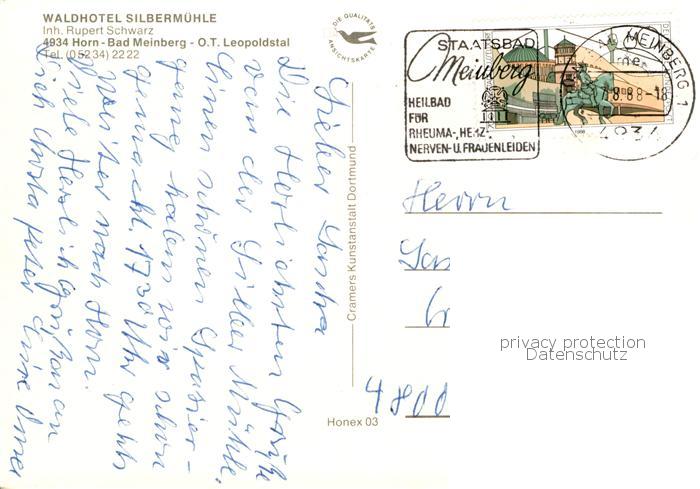 WALDHOTEL SILBERMÜHLE
Inh. Rupert Schwarz
4934 Horn - Bad Meinberg - O.T. Leopoldstal
Tel. (0 52 34) 22 22
DIE QUALITÄTS
ANSICHTSKARTE
STAATSBAD
Meinberg
HEILBAD
FÜR
RHEUMA-, HERZ-
NERVEN- U. FRAUENLEIDEN
MEINBERG 1
8.88-18
4934
Lieber Sandra
Die Herzlichsten Grüße
von der Silber Mühle.
Einen schönen Spazier-
gang haben wir schon
gemacht. 17³⁰ Uhr geht's
weiter nach Horn.
Viele Herzliche Grüße an
Dich Peter Deine Oma
Cramers Kunstanstalt Dortmund
Honex 03
Herrn
4800
privacy protection
Datenschutz